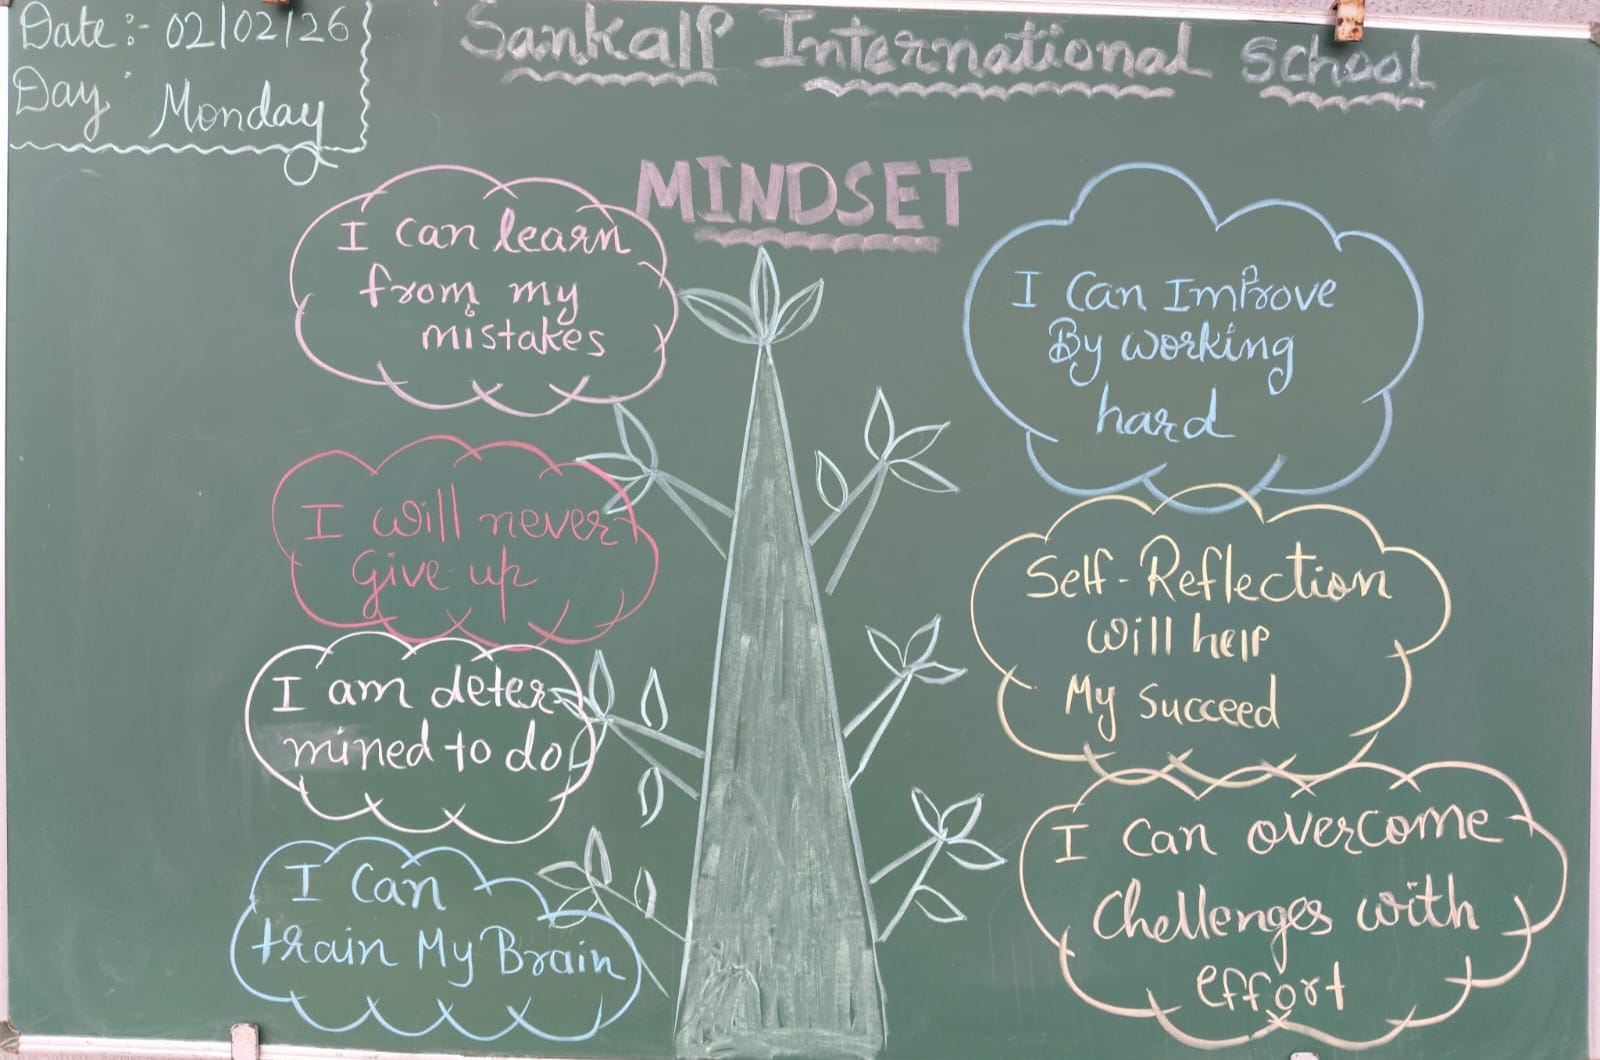 Date:- 02/02/26
Day: Monday
Sankalp International School
MINDSET
I can learn
from my
mistakes
I will never
Give up
I am deter-
mined to do
I Can
train My Brain
I Can Improve
By working
hard
Self-Reflection
Will help
My Succeed
I Can overcome
Chellenges with
effort